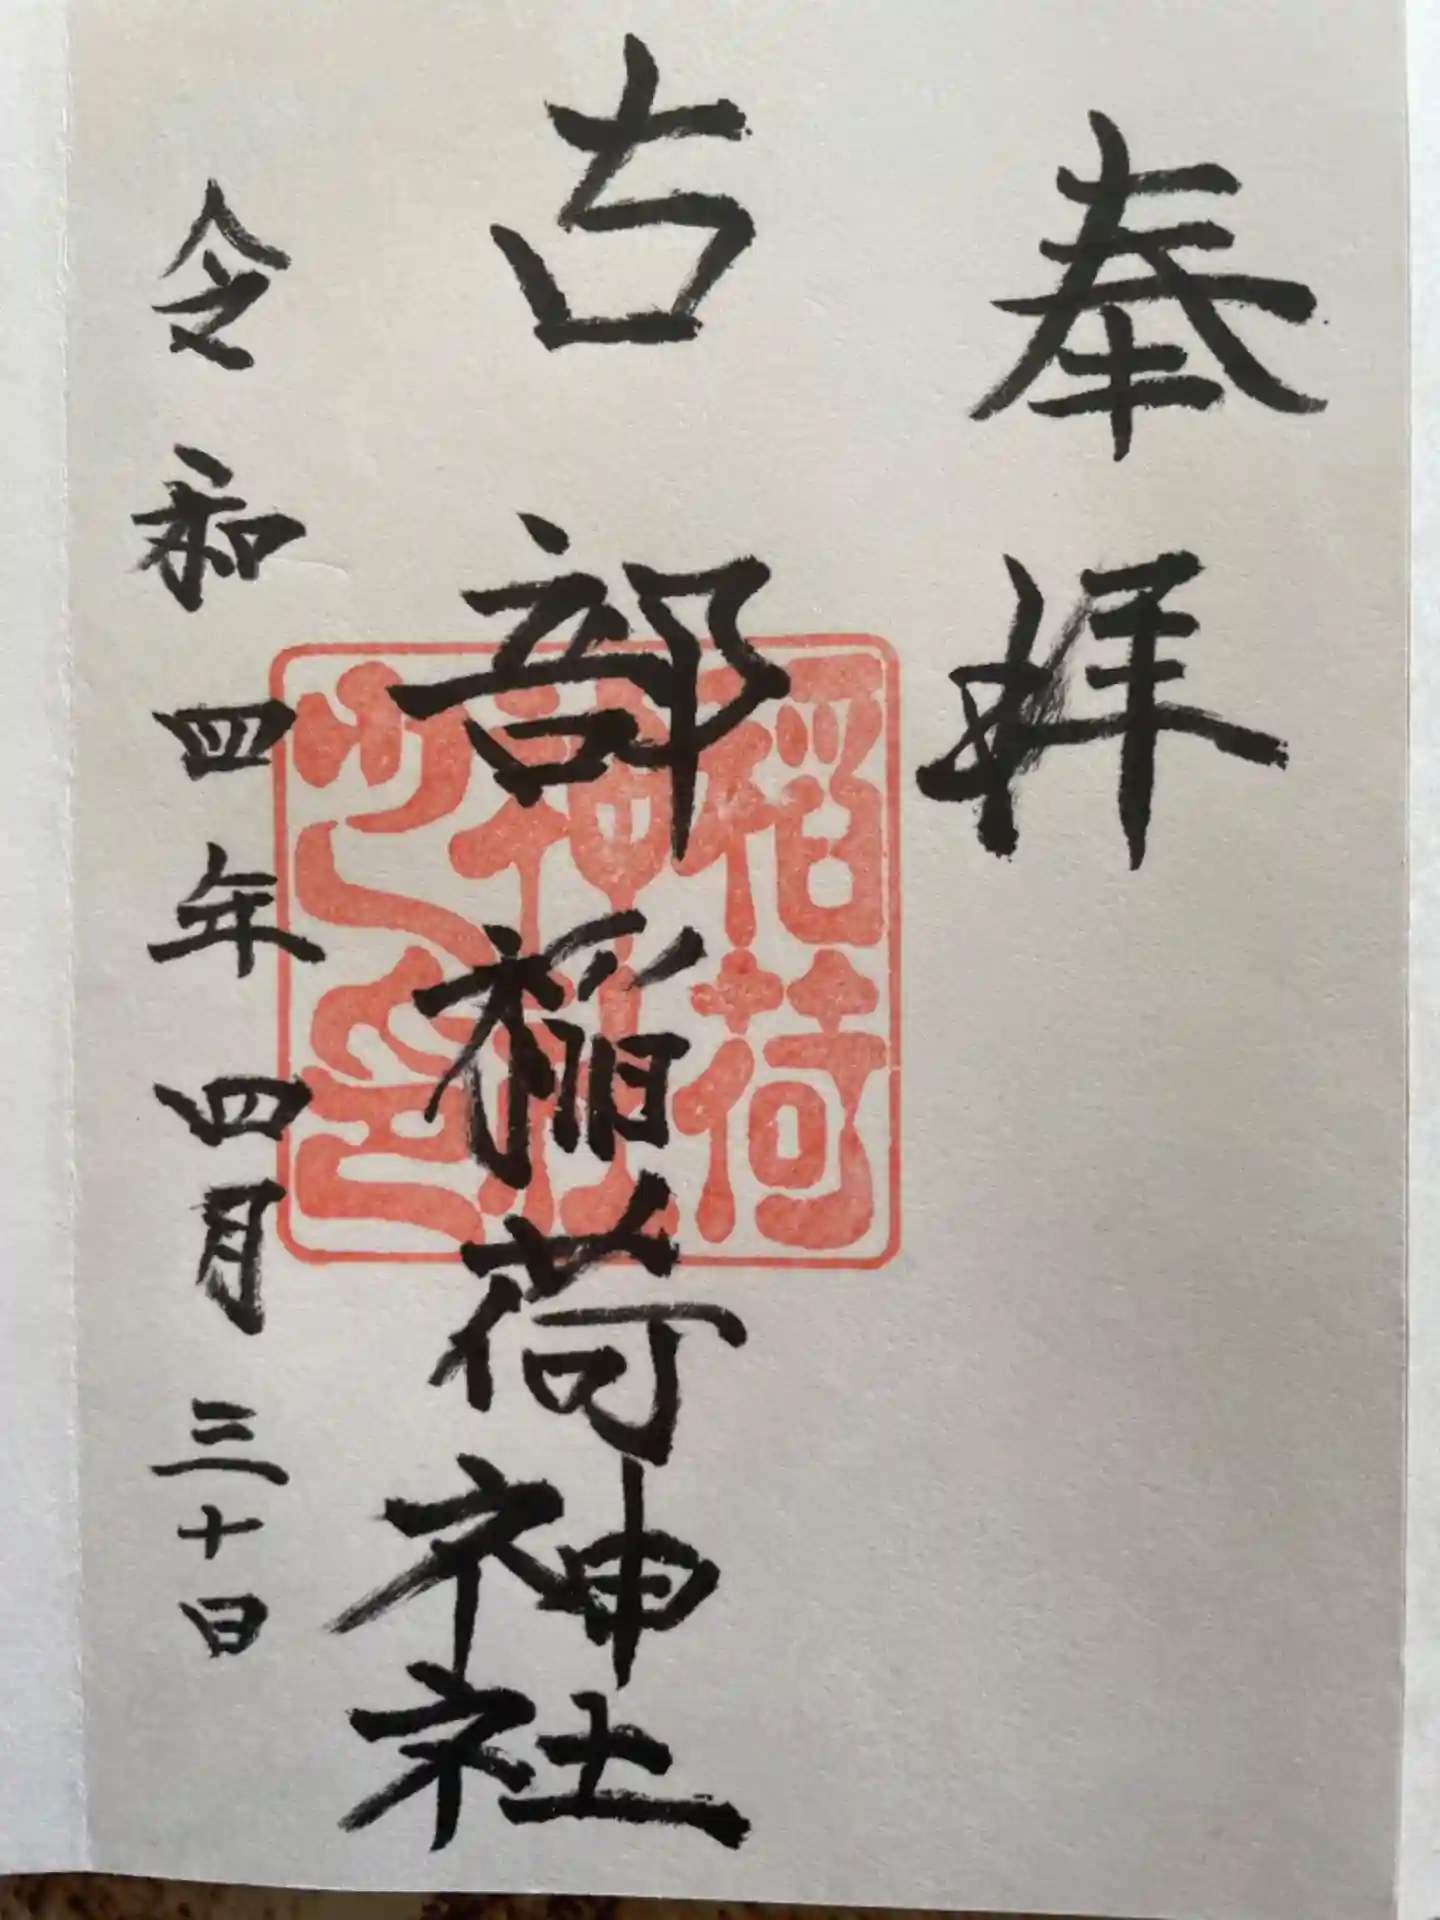 奉拝
古部稲荷神社
稲荷神社之印
令和四年四月三十日